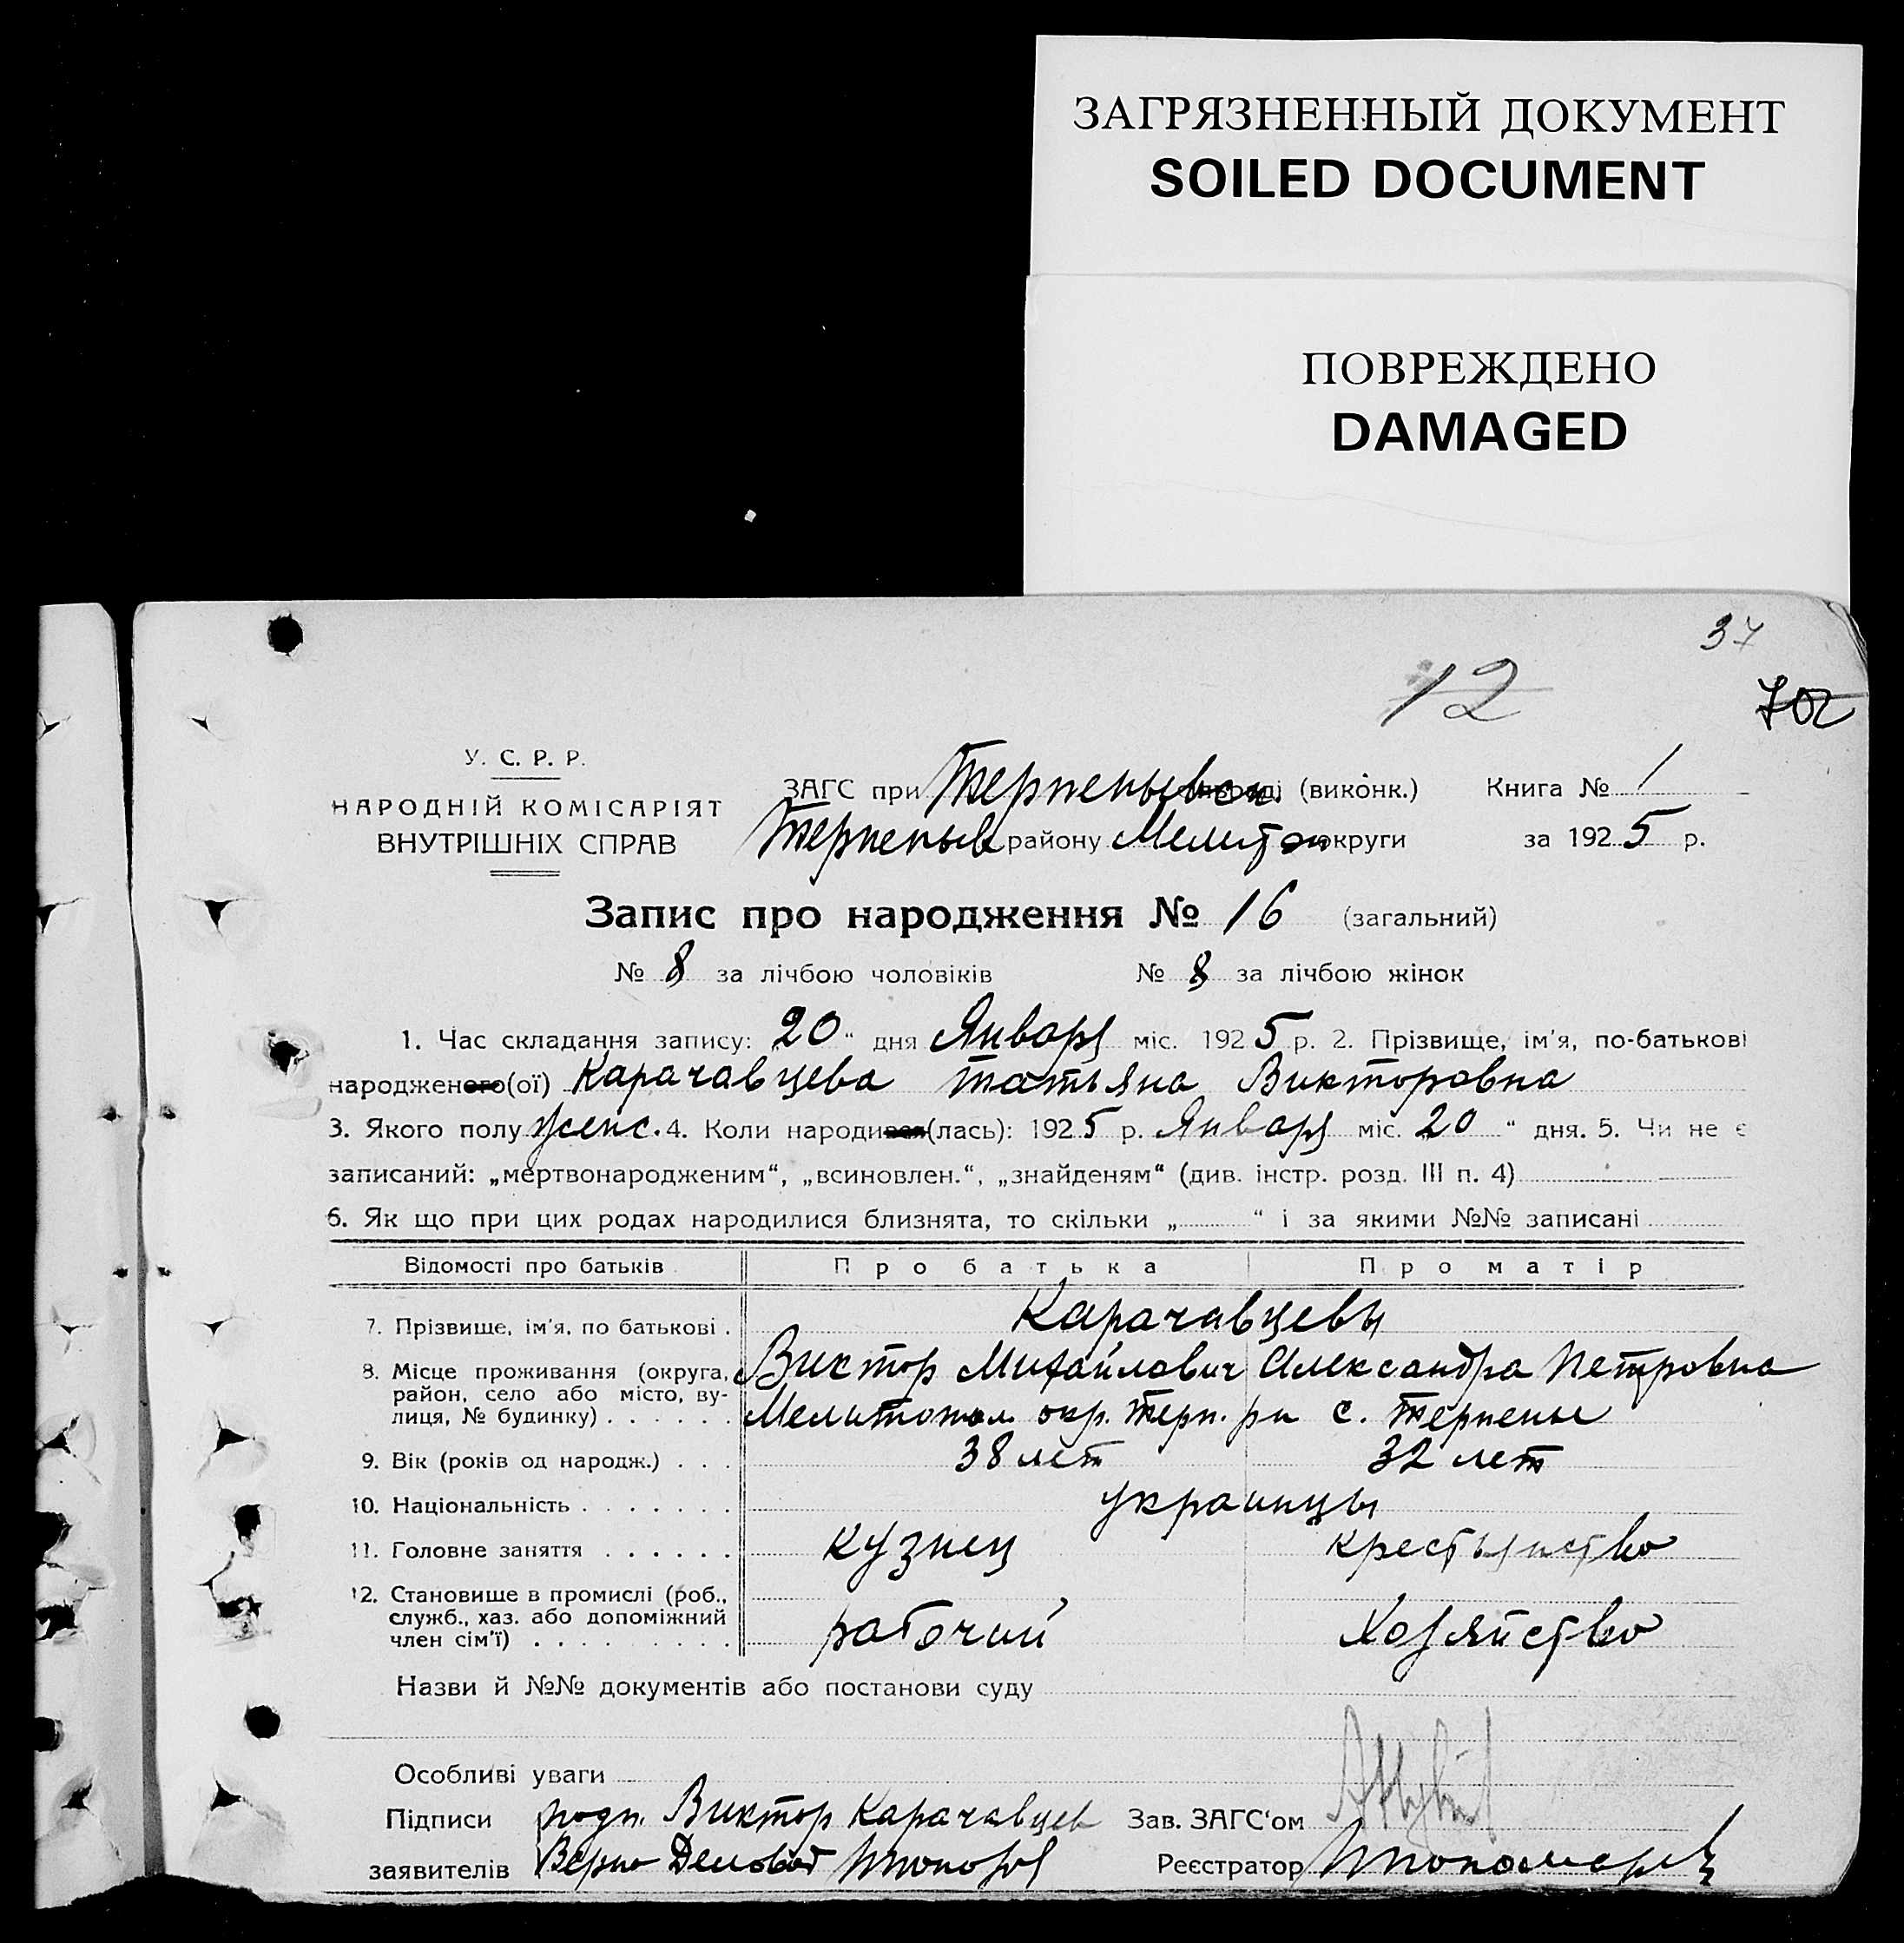 ЗАГРЯЗНЕННЫЙ ДОКУМЕНТ
SOILED DOCUMENT
ПОВРЕЖДЕНО
DAMAGED
37
12
702
У. С. Р. Р.
НАРОДНІЙ КОМІСАРІЯТ
ВНУТРІШНІХ СПРАВ
ЗАГС при Терпеньевск. (виконк.) Книга № 1
Терпеньев району Мелитоп округи за 1925 р.
Запис про народження № 16 (загальний)
№ 8 за лічбою чоловіків № 8 за лічбою жінок
1. Час складання запису: 20 " дня Января міс. 1925 р. 2. Прізвище, ім'я, по-батькові
народженого(ої) Карачавцева Татьяна Викторовна
3. Якого полу женс. 4. Коли народився(лась): 1925 р. Января міс. 20 " дня. 5. Чи не є
записаний: „мертвонародженим“, „всиновлен.“, „знайденям“ (див. інстр. розд. III п. 4)
6. Як що при цих родах народилися близнята, то скільки „ “ і за якими №№ записані
Відомості про батьків Про батька Про матір
7. Прізвище, ім'я, по батькові . Карачавцевы
8. Місце проживання (округа, Виктор Михайлович Александра Петровна
район, село або місто, ву-
лиця, № будинку) . . . . . . Мелитопол. окр. Терп. рн с. Терпенье
9. Вік (років од народж.) . . . 38 лет 32 лет
10. Національність . . . . . . . украинцы
11. Головне заняття . . . . . . кузнец крестьянство
12. Становище в промислі (роб.,
служб., хаз. або допоміжний
член сім'ї) . . . . . . . . . рабочий Хозяйство
Назви й №№ документів або постанови суду
Особливі уваги
Підписи подп. Виктор Карачавцев Зав. ЗАГС'ом
заявителів Верно Деловод Реєстратор